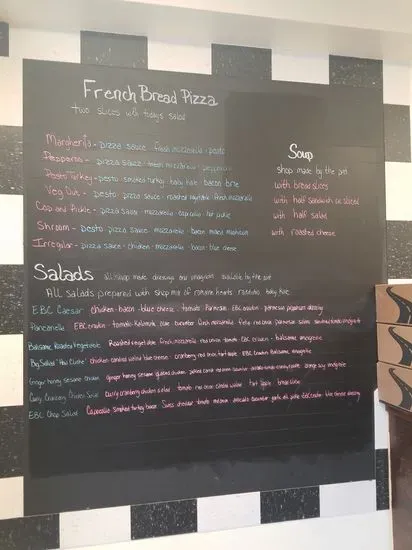 French Bread Pizza
two slices with todays salad
Margherita - pizza sauce - fresh mozzarella - pesto
Pepperoni - pizza sauce - fresh mozzarella - pepperoni
Pesto Turkey - pesto smoked turkey - baby kale - bacon brie
Veg Out - pesto pizza sauce - roasted vegetable fresh mozzarella
Cap and Pickle - pizza sauce mozzarella capicolla hot pickle
Shroom - pesto pizza sauce mozzarella bacon mushroom
Irregular - pizza sauce - chicken - mozzarella - bacon - blue cheese
Soup
shop made by the pint
with bread slices
with half sandwich or sliced
with half salad
with roasted cheese
Salads all shop made dressings and vinaigrets available by the pint
All salads prepared with shop mix of romaine hearts radicchio baby kale
EBC Caesar chicken - bacon - blue cheese - tomato Parmesan EBC crouton - parmesan peppercorn dressing
Panzanella EBC crouton - tomato Kalamata olive cucumber fresh mozzarella Feta red onion parmesan
Balsamic Roasted Vegetable Roasted vegetable fresh mozzarella red onion tomato EBC crouton - balsamic vinaigrette
Big Salad chicken candied walnut blue cheese - cranberry red onion tart apple EBC crouton Balsamic vinaigrette
Ginger honey sesame chicken ginger honey sesame chicken red onion orange soy vinaigrette
Curry Cranberry Chicken Salad Curry cranberry chicken salad tomato red onion candied walnut tart apple
EBC Chop Salad Capicolla smoked turkey bacon Swiss cheddar tomato red onion avocado cucumber garlic dill pickle EBC crouton blue cheese dressing